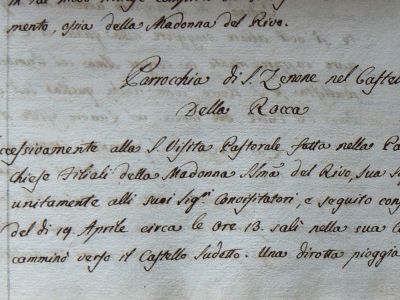 mento, osia della Madonna del Rivo.
Parrocchia di S. Zenone nel Castel
Della Rocca
ccessivamente alla S. Visita Pastorale fatta nella Pa
chiese Filiali della Madonna SSma del Rivo, sua Si
unitamente alli suoi Sigri Convisitatori, e seguito con
del di 19. Aprile circa le Ore 13. salì nella sua C
camminò verso il Castello Sudetto. Una dirotta pioggia